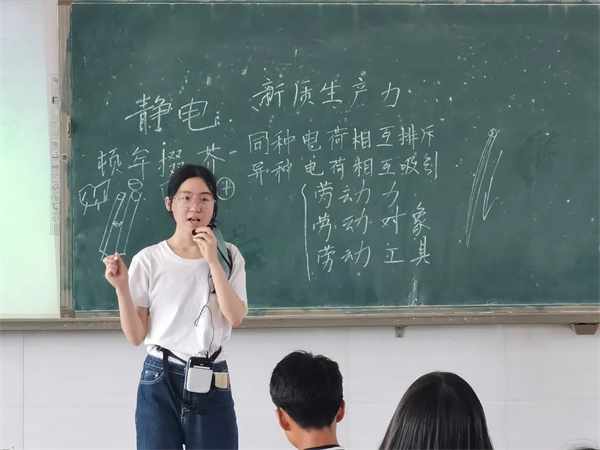 静电
新质生产力
同种电荷相互排斥
顿牟掇芥
异种电荷相互吸引
劳动力
劳动对象
劳动工具